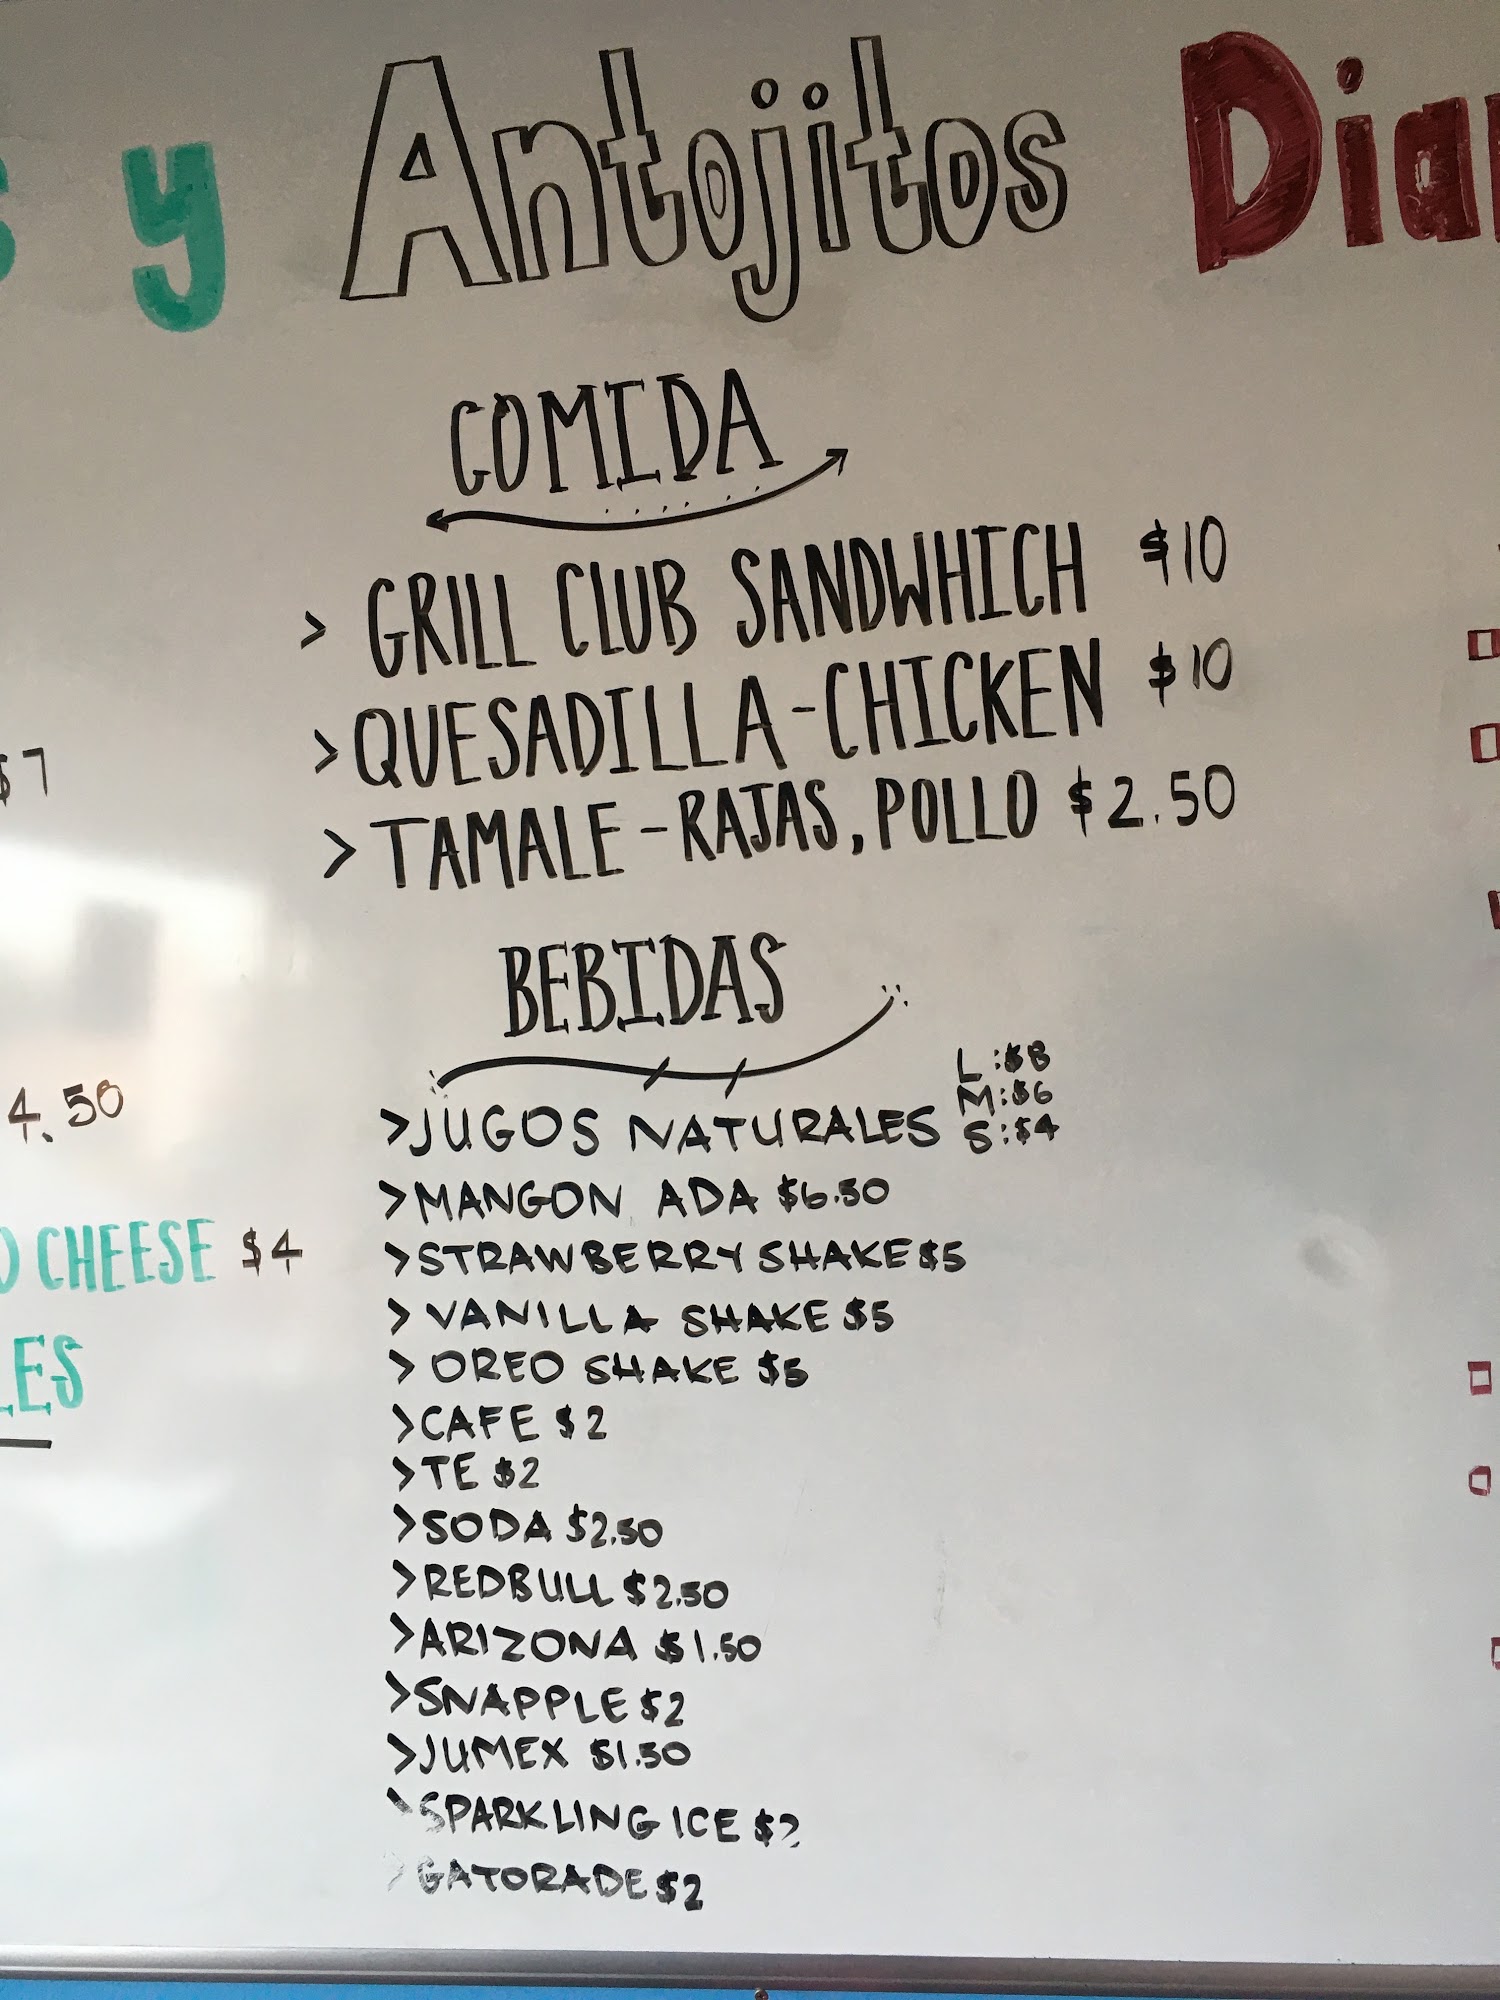 y Antojitos
COMIDA
> GRILL CLUB SANDWHICH $10
> QUESADILLA - CHICKEN $10
$7
> TAMALE - RAJAS, POLLO $2.50
BEBIDAS
4.50
> JUGOS NATURALES L:$8
M:$6
S:$4
> MANGON ADA $6.50
CHEESE $4
> STRAWBERRY SHAKE $5
> VANILLA SHAKE $5
> OREO SHAKE $5
> CAFE $2
> TE $2
> SODA $2.50
> REDBULL $2.50
> ARIZONA $1.50
> SNAPPLE $2
> JUMEX $1.50
> SPARKLING ICE $2
> GATORADE $2